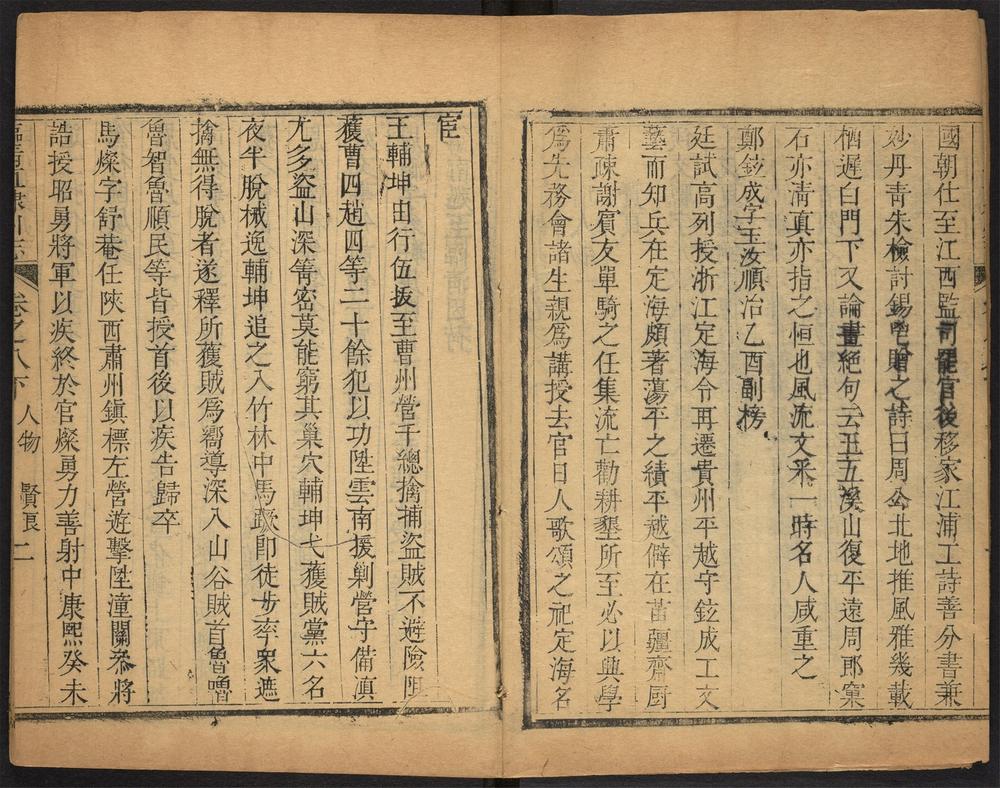 國朝仕至江西監司罷官後移家江浦工詩善分書兼
妙丹青朱檢討錫鬯贈之詩曰周公北地推風雅幾載
栖遲白門下又論畫絕句云玉五溪山復平遠周郎窠
石亦清真亦指之恒也風流文采一時名人咸重之
鄭鉉成字玉汝順治乙酉副榜
廷試高列授浙江定海令再遷貴州平越守鉉成工文
藝而知兵在定海頗著蕩平之績平越僻在苗疆齋厨
肅疎謝賓友單騎之任集流亡勸耕墾所至必以興學
爲先務會諸生親爲講授去官日人歌頌之祀定海名
宦
王輔坤由行伍拔至曹州營千總擒捕盜賊不避險阻
獲曹四趙四等二十餘犯以功陞雲南援剿營守備滇
尤多盜山深箐密莫能窮其巢穴輔坤弋獲賊黨六名
夜半脫械逸輔坤追之入竹林中馬蹶即徒步率衆遮
擒無得脫者遂釋所獲賊爲嚮導深入山谷賊首魯嚕
魯智魯順民等皆授首後以疾告歸卒
馬燦字舒菴任陝西肅州鎮標左營遊擊陞潼關叅將
誥授昭勇將軍以疾終於官燦勇力善射中康熙癸未
直隸 州志 卷之八下 人物 賢良 二